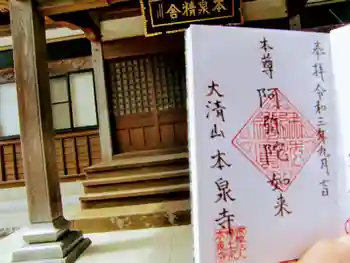 本泉精舎
奉拝 令和三年九月吉日
本尊 阿弥陀如来
大清山 本泉寺